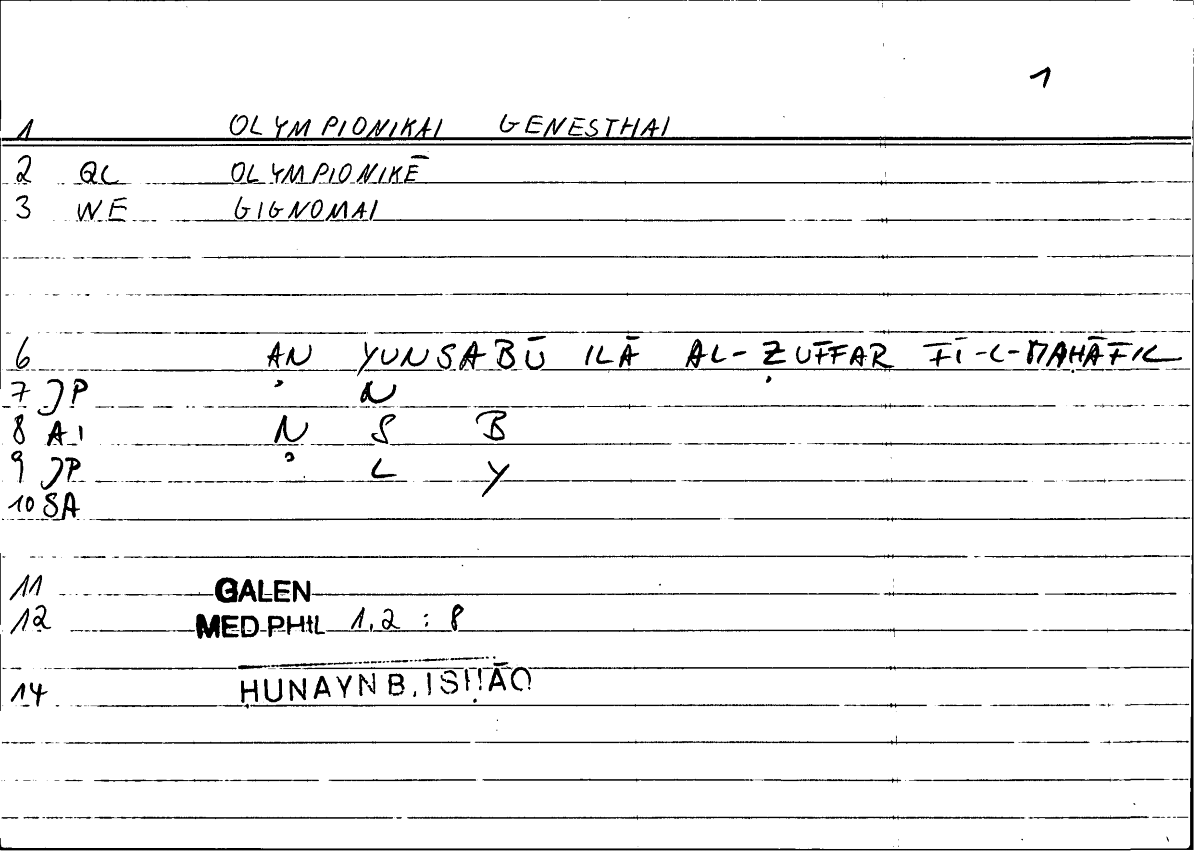 1
1 OLYMPIONIKAI GENESTHAI
2 QC OLYMPIONIKĒ
3 WE GIGNOMAI
6 AN YUNSABŪ ILĀ AL-ẒUFFAR FĪ-L-MAḤĀFIL
7 JP ʾ N
8 AI N S B
9 JP ʾ L Y
10 SA
11 GALEN
12 MED PHIL 1,2 : 8
14 ḤUNAYN B. ISḤĀQ